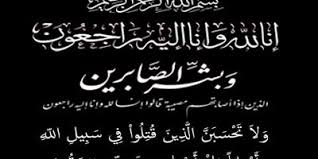 بسم الله الرحمن الرحيم
إنا لله وإنا إليه راجعون
وبشر الصابرين
الذين إذا أصابتهم مصيبة قالوا إنا لله وإنا إليه راجعون
وَلاَ تَحْسَبَنَّ الَّذِينَ قُتِلُواْ فِي سَبِيلِ اللّهِ